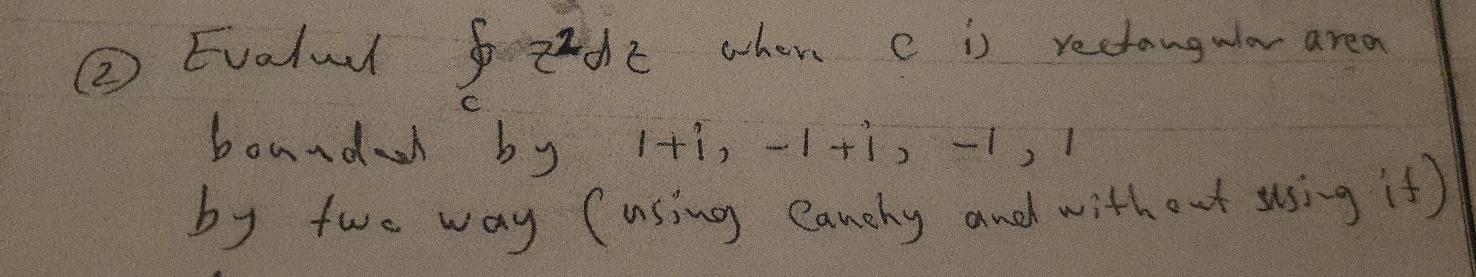 ② Evaluet ∮ z²dz where c is rectangular area
c
bounded by 1+i, -1+i, -1, 1
by two way (using Cauchy and without using it)